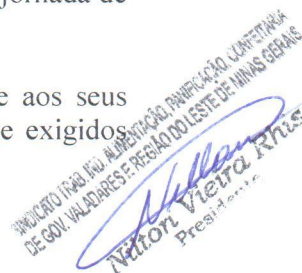 jornada de
e aos seus
e exigidos
SINDICATO TRAB. IND. ALIMENTAÇÃO, PANIFICAÇÃO, CONFEITARIA
DE GOV. VALADARES E REGIÃO DO LESTE DE MINAS GERAIS
Nilton Vieira Rhis
Presidente